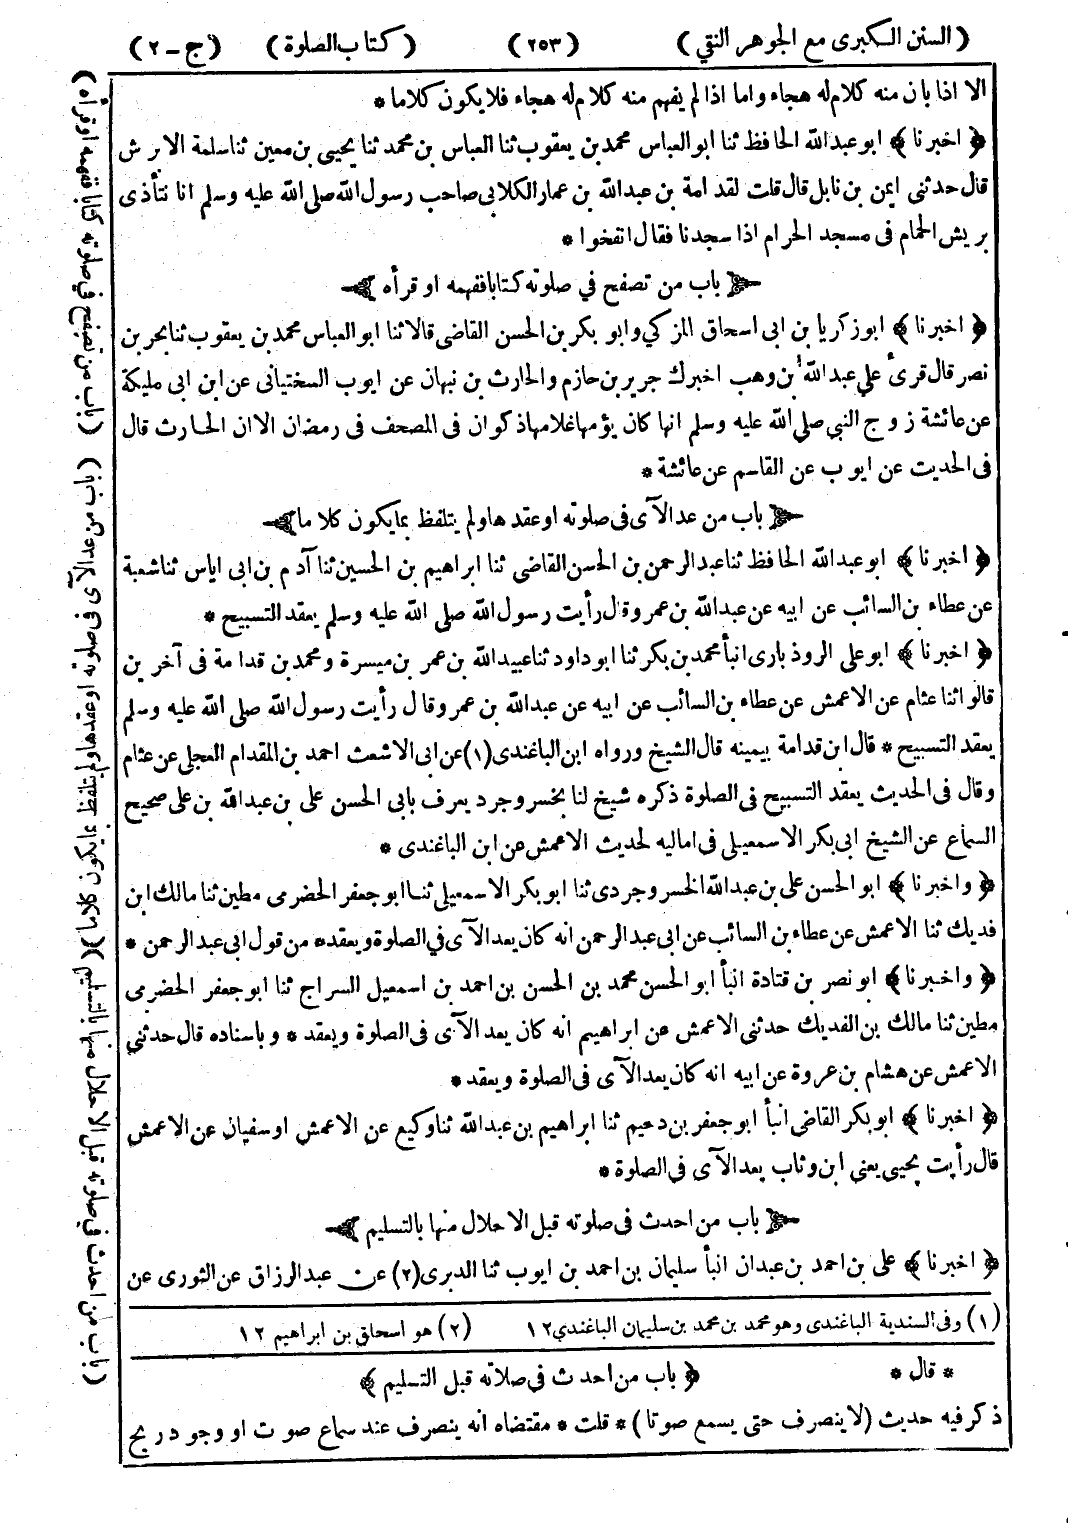 (السنن الكبرى مع الجوهر النقي) (٢٥٣) (كتاب الصلوة) (ج-٢)
الا اذا بان منه كلام له هجاء واما اذا لم يفهم منه كلام له هجاء فلا يكون كلاما *
﴿اخبرنا﴾ ابو عبد الله الحافظ ثنا ابو العباس محمد بن يعقوب ثنا العباس بن محمد ثنا يحيى بن معين ثنا سلمة الابرش
قال حدثنى ايمن بن نابل قال قلت لقدامة بن عبد الله بن عمار الكلابى صاحب رسول الله صلى الله عليه وسلم انا نتأذى
بريش الحمام فى مسجد الحرام اذا سجدنا فقال انفخوا *
﴿باب من تصفح في صلوته كتابا ففهمه او قرأه﴾
﴿اخبرنا﴾ ابو زكريا بن ابى اسحاق المزكي وابو بكر بن الحسن القاضى قالا ثنا ابو العباس محمد بن يعقوب ثنا بحر بن
نصر قال قرئ علي عبد الله بن وهب اخبرك جرير بن حازم والحارث بن نبهان عن ايوب السختيانى عن ابن ابى مليكة
عن عائشة زوج النبي صلى الله عليه وسلم انها كان يؤمها غلامها ذكوان فى المصحف فى رمضان الا ان الحارث قال
فى الحديث عن ايوب عن القاسم عن عائشة *
﴿باب من عد الآى فى صلوته او عقدها ولم يتلفظ بما يكون كلاما﴾
﴿اخبرنا﴾ ابو عبد الله الحافظ ثنا عبد الرحمن بن الحسن القاضى ثنا ابراهيم بن الحسين ثنا آدم بن ابى اياس ثنا شعبة
عن عطاء بن السائب عن ابيه عن عبد الله بن عمرو قال رأيت رسول الله صلى الله عليه وسلم يعقد التسبيح *
﴿اخبرنا﴾ ابو على الروذبارى انبأ محمد بن بكر ثنا ابو داود ثنا عبيد الله بن عمر بن ميسرة ومحمد بن قدامة فى آخرين
قالوا ثنا عثام عن الاعمش عن عطاء بن السائب عن ابيه عن عبد الله بن عمرو قال رأيت رسول الله صلى الله عليه وسلم
يعقد التسبيح * قال ابن قدامة بيمينه قال الشيخ ورواه ابن الباغندى (١) عن ابى الاشعث احمد بن المقدام العجلى عن عثام
وقال فى الحديث يعقد التسبيح فى الصلوة ذكره شيخ لنا بخسروجرد يعرف بابى الحسن على بن عبد الله بن على صحيح
السماع عن الشيخ ابى بكر الاسمعيلى فى اماليه لحديث الاعمش عن ابن الباغندى *
﴿واخبرنا﴾ ابو الحسن على بن عبد الله الخسروجردى ثنا ابو بكر الاسمعيلى ثنا ابو جعفر الحضرمى مطين ثنا مالك ابن
فديك ثنا الاعمش عن عطاء بن السائب عن ابى عبد الرحمن انه كان يعد الآى في الصلوة ويعقده من قول ابى عبد الرحمن *
﴿واخبرنا﴾ ابو نصر بن قتادة انبأ ابو الحسن محمد بن الحسن بن احمد بن اسمعيل السراج ثنا ابو جعفر الحضرمى
مطين ثنا مالك بن الفديك حدثنى الاعمش عن ابراهيم انه كان يعد الآى فى الصلوة ويعقد * وباسناده قال حدثني
الاعمش عن هشام بن عروة عن ابيه انه كان يعد الآى فى الصلوة ويعقد *
﴿اخبرنا﴾ ابو بكر القاضى انبأ ابو جعفر بن دحيم ثنا ابراهيم بن عبد الله ثنا وكيع عن الاعمش او سفيان عن الاعمش
قال رأيت يحيى يعنى ابن وثاب يعد الآى فى الصلوة *
﴿باب من احدث فى صلوته قبل الاحلال منها بالتسليم﴾
﴿اخبرنا﴾ على بن احمد بن عبدان انبأ سليمان بن احمد بن ايوب ثنا الدبرى (٢) عن عبد الرزاق عن الثورى عن
(١) وفى السندية الباغندى وهو محمد بن محمد بن سليمان الباغندي ١٢ (٢) هو اسحاق بن ابراهيم ١٢
* قال * ﴿باب من احدث في صلاته قبل التسليم﴾
ذكر فيه حديث (لا ينصرف حتى يسمع صوتا) * قلت * مقتضاه انه ينصرف عند سماع صوت او وجود ريح
(باب من تصفح في صلوته كتابا ففهمه او قرأه)
(باب من عد الآى فى صلوته او عقدها ولم يتلفظ بما يكون كلاما)
(باب من احدث في صلوته قبل الاحلال منها بالتسليم)